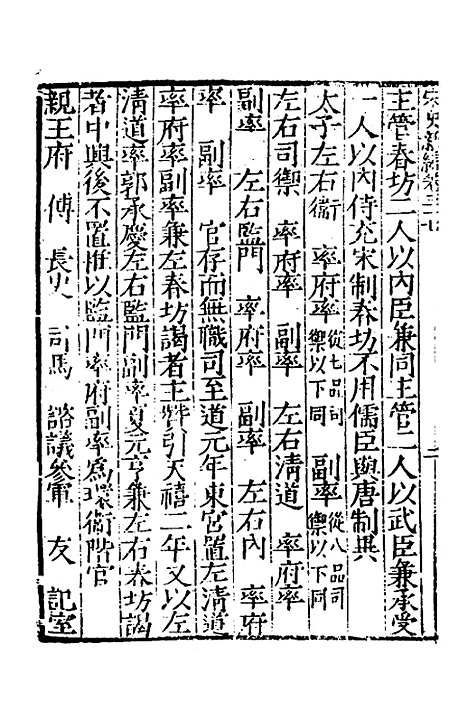 宋史新編卷三十七
主管春坊二人以內臣兼同主管二人以武臣兼承受
一人以內侍充宋制春坊不用儒臣與唐制異
太子左右衞　率府率從七品司禦以下同　副率從八品司禦以下同
左右司禦　率府率　副率　左右清道　率府率
副率　左右監門　率府率　副率　左右內　率府
率　副率　官存而無職司至道元年東宮置左清道
率府率副率兼左春坊謁者主贊引天禧二年又以左
清道率郭承慶左右監門副率夏元亨兼左右春坊謁
者中興後不置惟以監門率府副率爲環衞階官
親王府　傅　長史　司馬　諮議參軍　友　記室